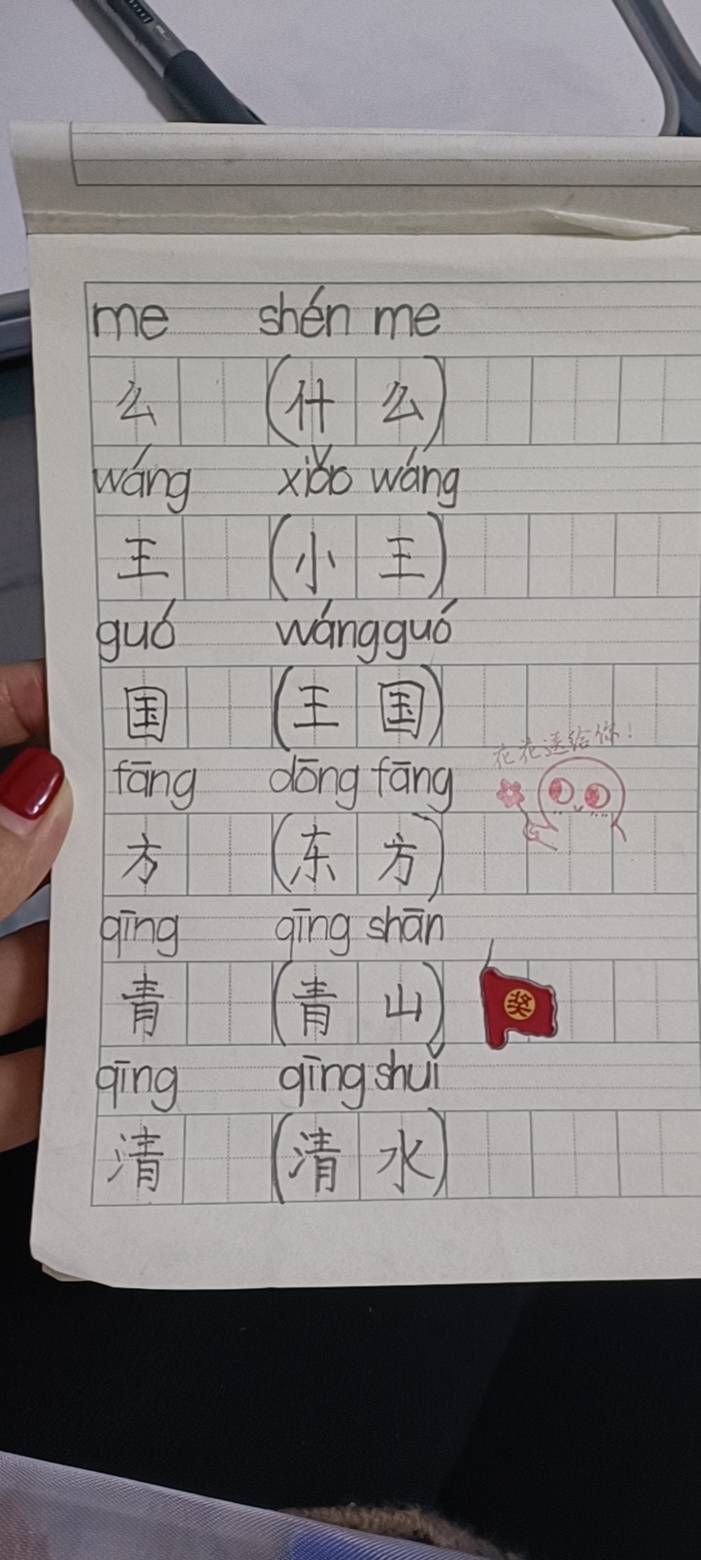 me shén me
么 (什么)
wáng xiǎo wáng
王 (小王)
guó wáng guó
国 (王国)
花花送给你!
fāng dōng fāng
方 (东方)
qīng qīng shān
青 (青山)
奖
qīng qīng shuǐ
清 (清水)